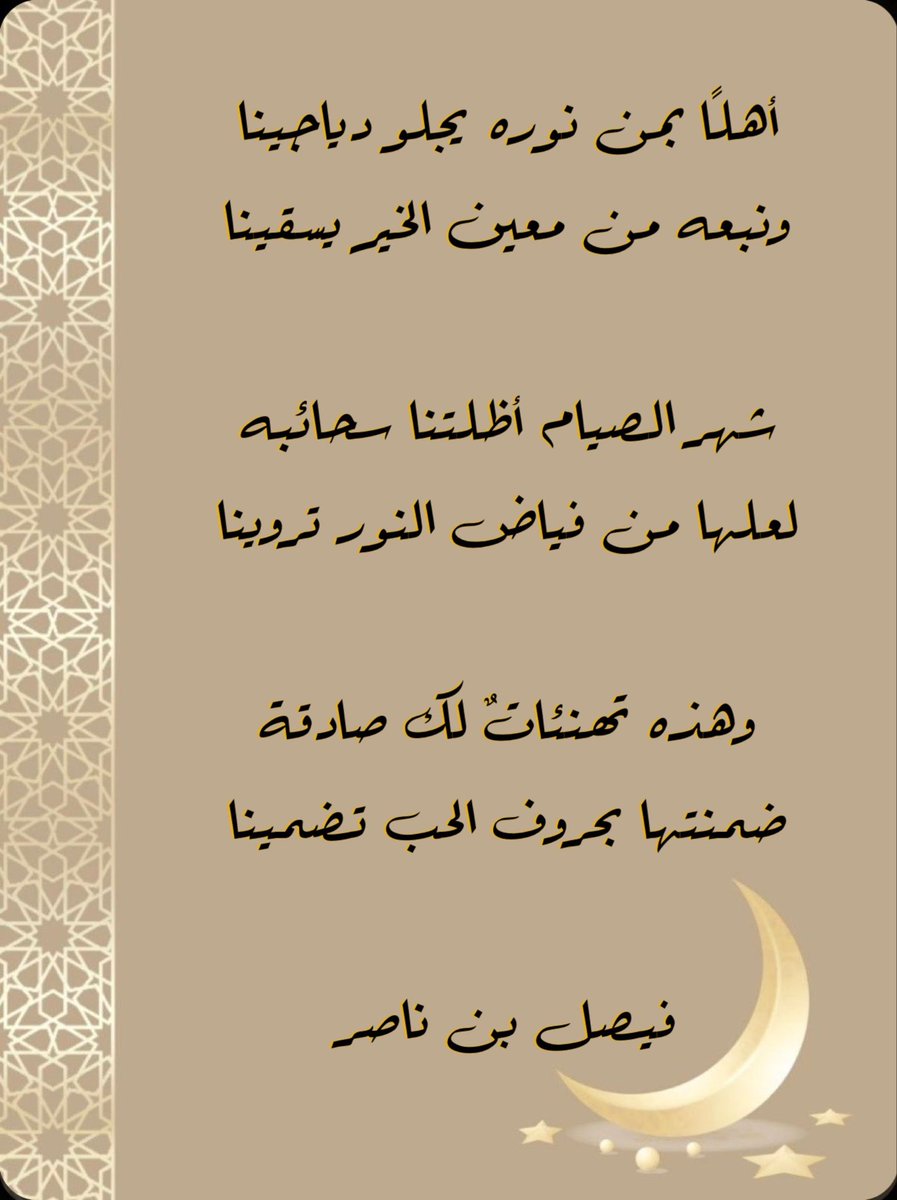 أهلًا بمن نوره يجلو دياجينا
ونبعه من معين الخير يسقينا
شهر الصيام أظلتنا سحائبه
لعلها من فياض النور تروينا
وهذه تهنئاتٌ لك صادقة
ضمنتها بحروف الحب تضمينا
فيصل بن ناصر